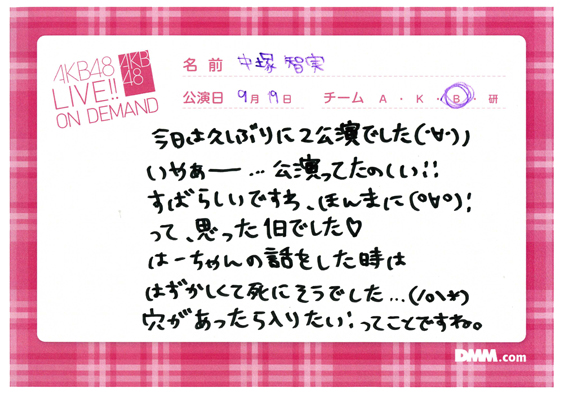 AKB48
LIVE!!
ON DEMAND
AKB
48
名前 中塚智実
公演日 9月19日 チーム A・K・B・研
今日は久しぶりに2公演でした(・∀・)ノ
いやぁー…公演ってたのしい!!
すばらしいですね、ほんまに(°∀°)!
って、思った1日でした♡
はーちゃんの話をした時は
はずかしくて死にそうでした…(/o\*)
穴があったら入りたい!ってことですね。
DMM.com